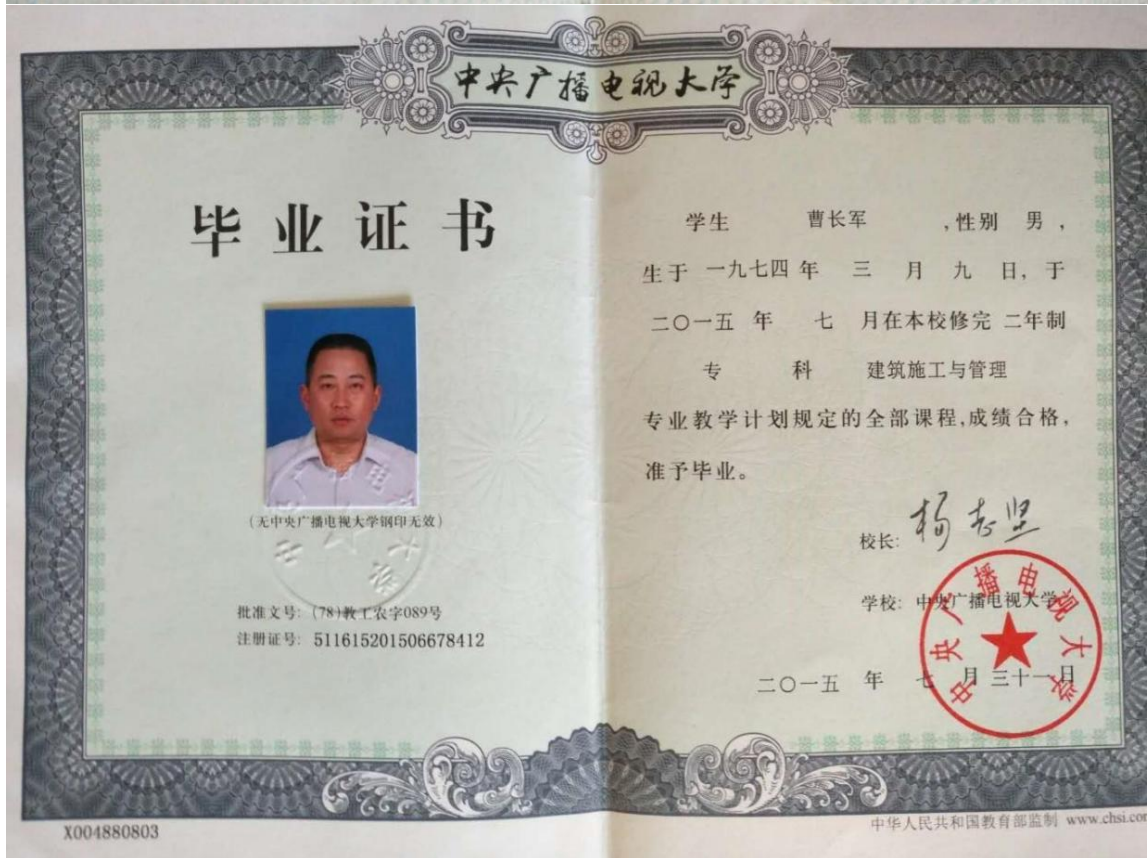 中央广播电视大学
毕业证书
(无中央广播电视大学钢印无效)
批准文号: (78)教工农字089号
注册证号: 511615201506678412
X004880803
学生 曹长军 ,性别 男 ,
生于 一九七四 年 三 月 九 日, 于
二〇一五 年 七 月在本校修完 二年制
专 科 建筑施工与管理
专业教学计划规定的全部课程,成绩合格,
准予毕业。
校长: 杨志坚
学校: 中央广播电视大学
中央广播电视大学
二〇一五 年 七 月 三十一日
中华人民共和国教育部监制 www.chsi.com